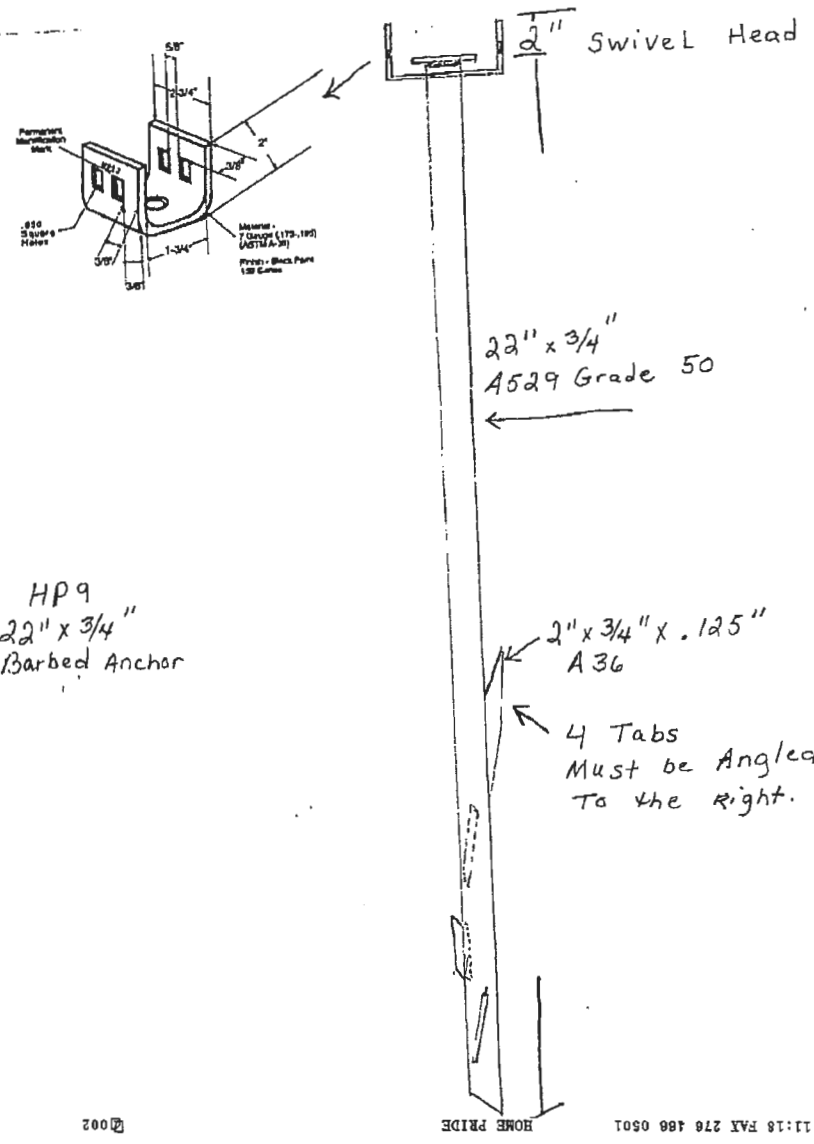 2" Swivel Head
5/8"
2-3/4"
Permanent
Identification
Mark
2"
3/8"
Square
Holes
3/8"
3/8"
1-3/4"
Material -
7 Gauge
(ASTM A-36)
Finish - Black Paint
22" x 3/4"
A529 Grade 50
HP9
22" x 3/4"
Barbed Anchor
2" x 3/4" x .125"
A36
4 Tabs
Must be Angled
To the Right.
002
HOME PRIDE
11:18 FAX 276 466 0501